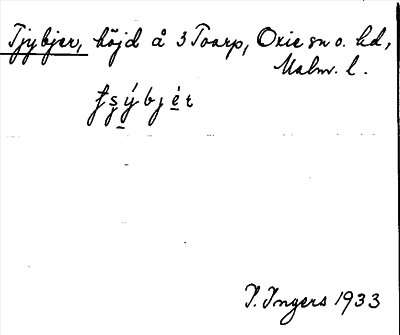 Tjybjer, höjd å 3 Toarp, Oxie sn o. hd,
Malm. l.
I. Ingers 1933